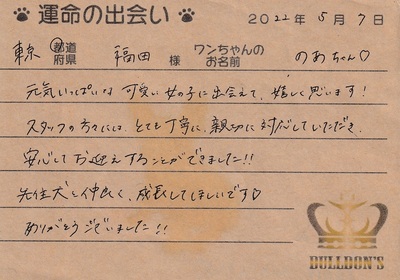 運命の出会い 2022年5月7日
東京 都道府県 福田 様 ワンちゃんのお名前 のあちゃん♡
元気いっぱいな可愛い女の子に出会えて、嬉しく思います!
スタッフの方々には、とても丁寧に、親切に対応していただき、
安心してお迎えすることができました!!
先住犬と仲良く、成長してほしいです♡
ありがとうございました!!
BULLDON'S